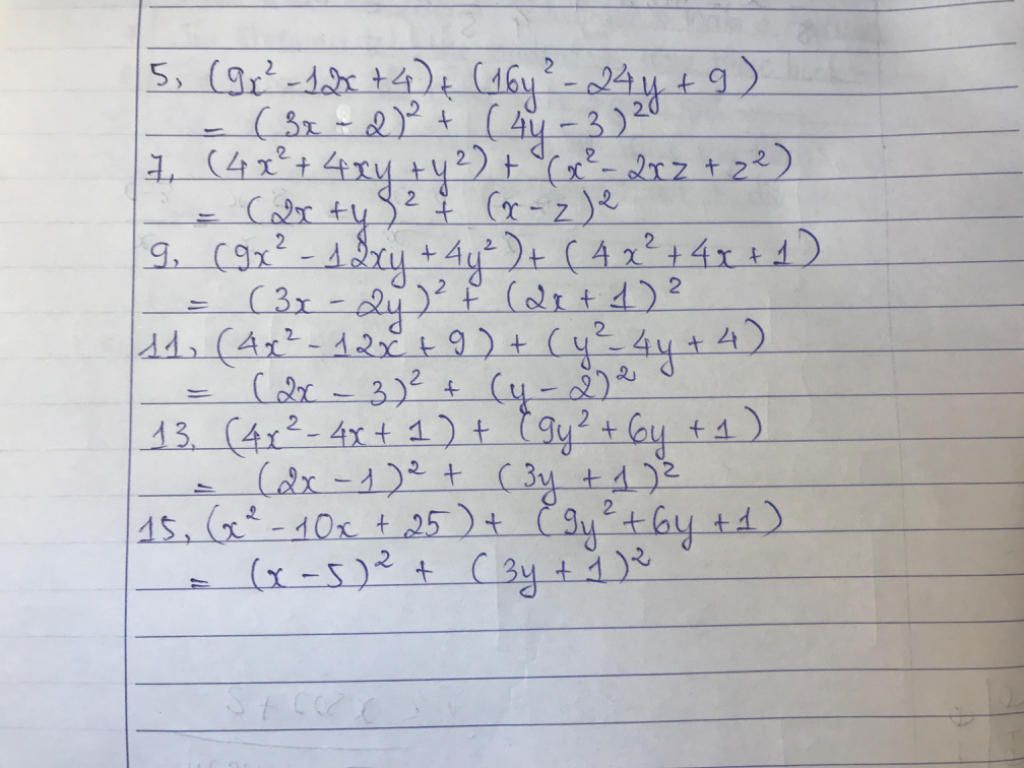 5, (9x² - 12x + 4) + (16y² - 24y + 9)
= (3x - 2)² + (4y - 3)²
7, (4x² + 4xy + y²) + (x² - 2xz + z²)
= (2x + y)² + (x - z)²
9, (9x² - 12xy + 4y²) + (4x² + 4x + 1)
= (3x - 2y)² + (2x + 1)²
11, (4x² - 12x + 9) + (y² - 4y + 4)
= (2x - 3)² + (y - 2)²
13, (4x² - 4x + 1) + (9y² + 6y + 1)
= (2x - 1)² + (3y + 1)²
15, (x² - 10x + 25) + (9y² + 6y + 1)
= (x - 5)² + (3y + 1)²